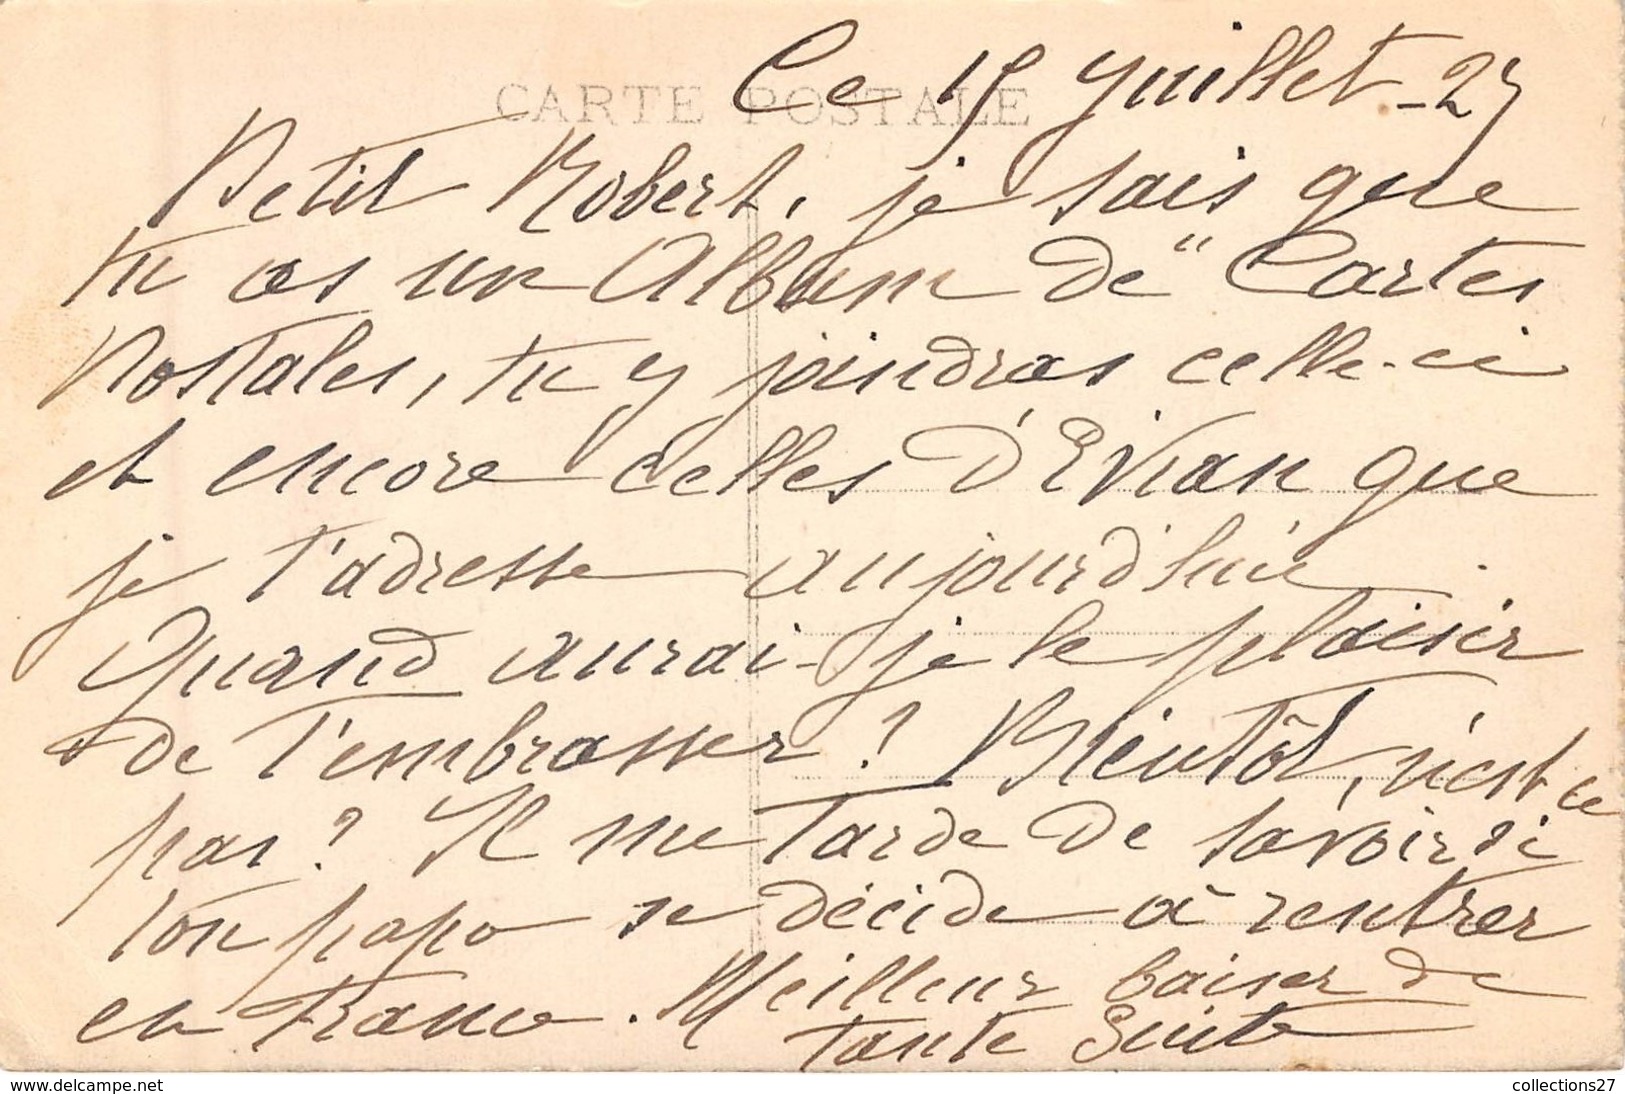 CARTE POSTALE
Ce 15 Juillet - 25
Petit Robert, je sais que
tu as un Album de "Cartes
Postales, tu y joindras celle-ci
et encore celles d'Evian que
je t'adresse aujourd'hui.
Quand aurai-je le plaisir
de t'embrasser ? Bientôt, n'est ce
pas ? Il me tarde de savoir si
ton papa se décide à rentrer
en France. Meilleur baiser de
tante
collections27